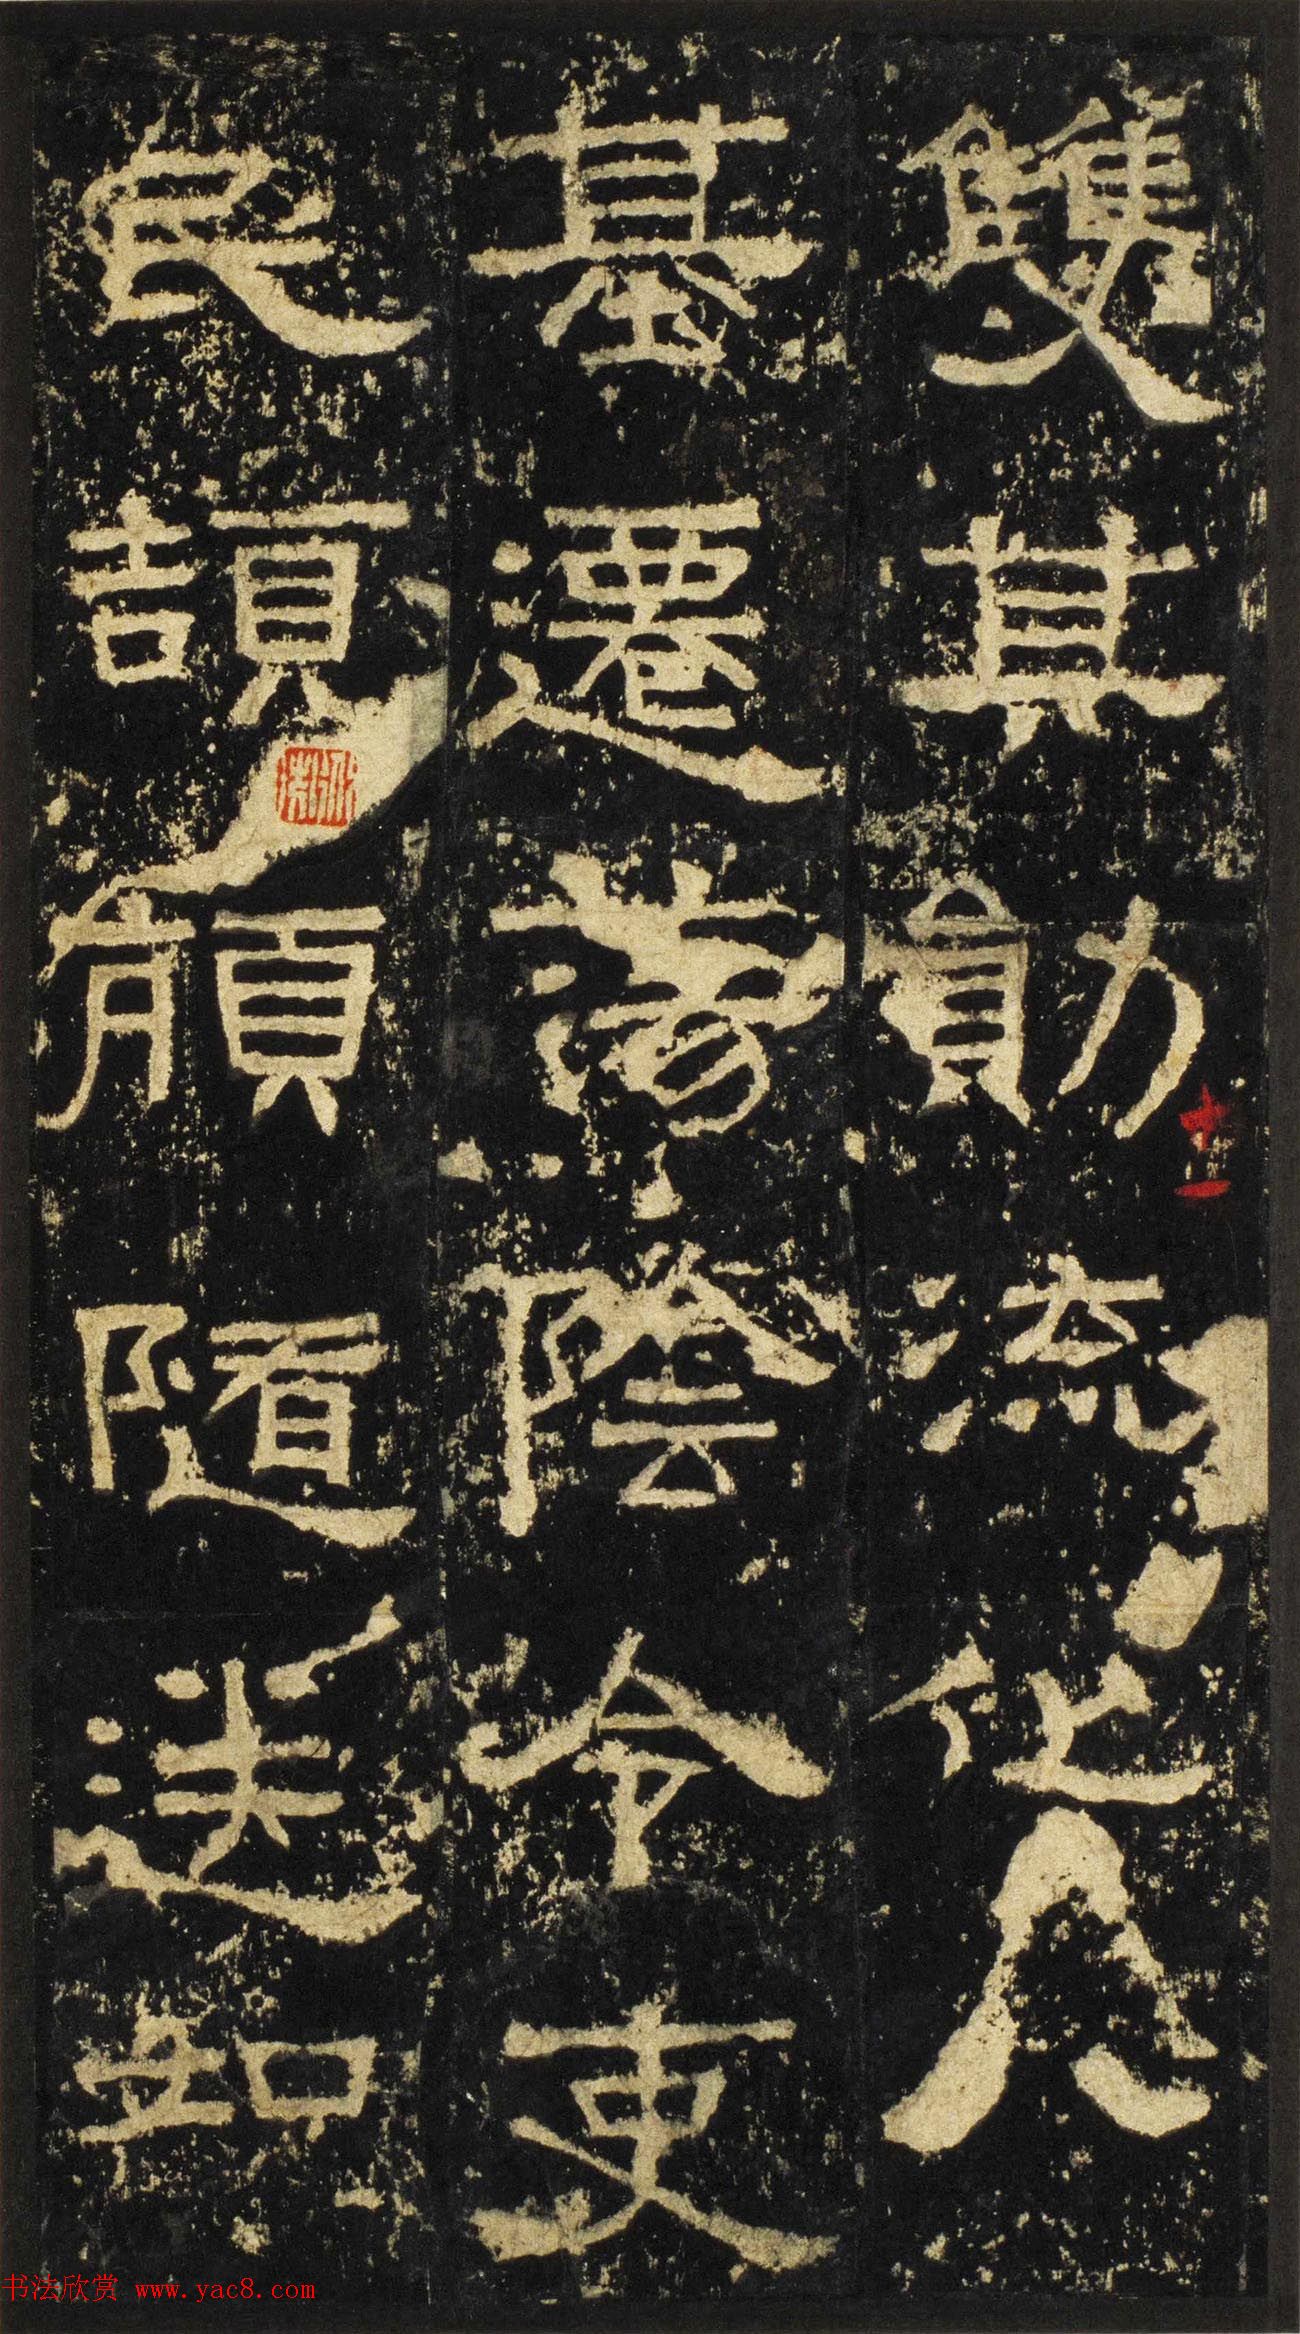 雙其勛流化八
基遷蕩陰令吏
民頡頏隨送如
书法欣赏 www.yac8.com